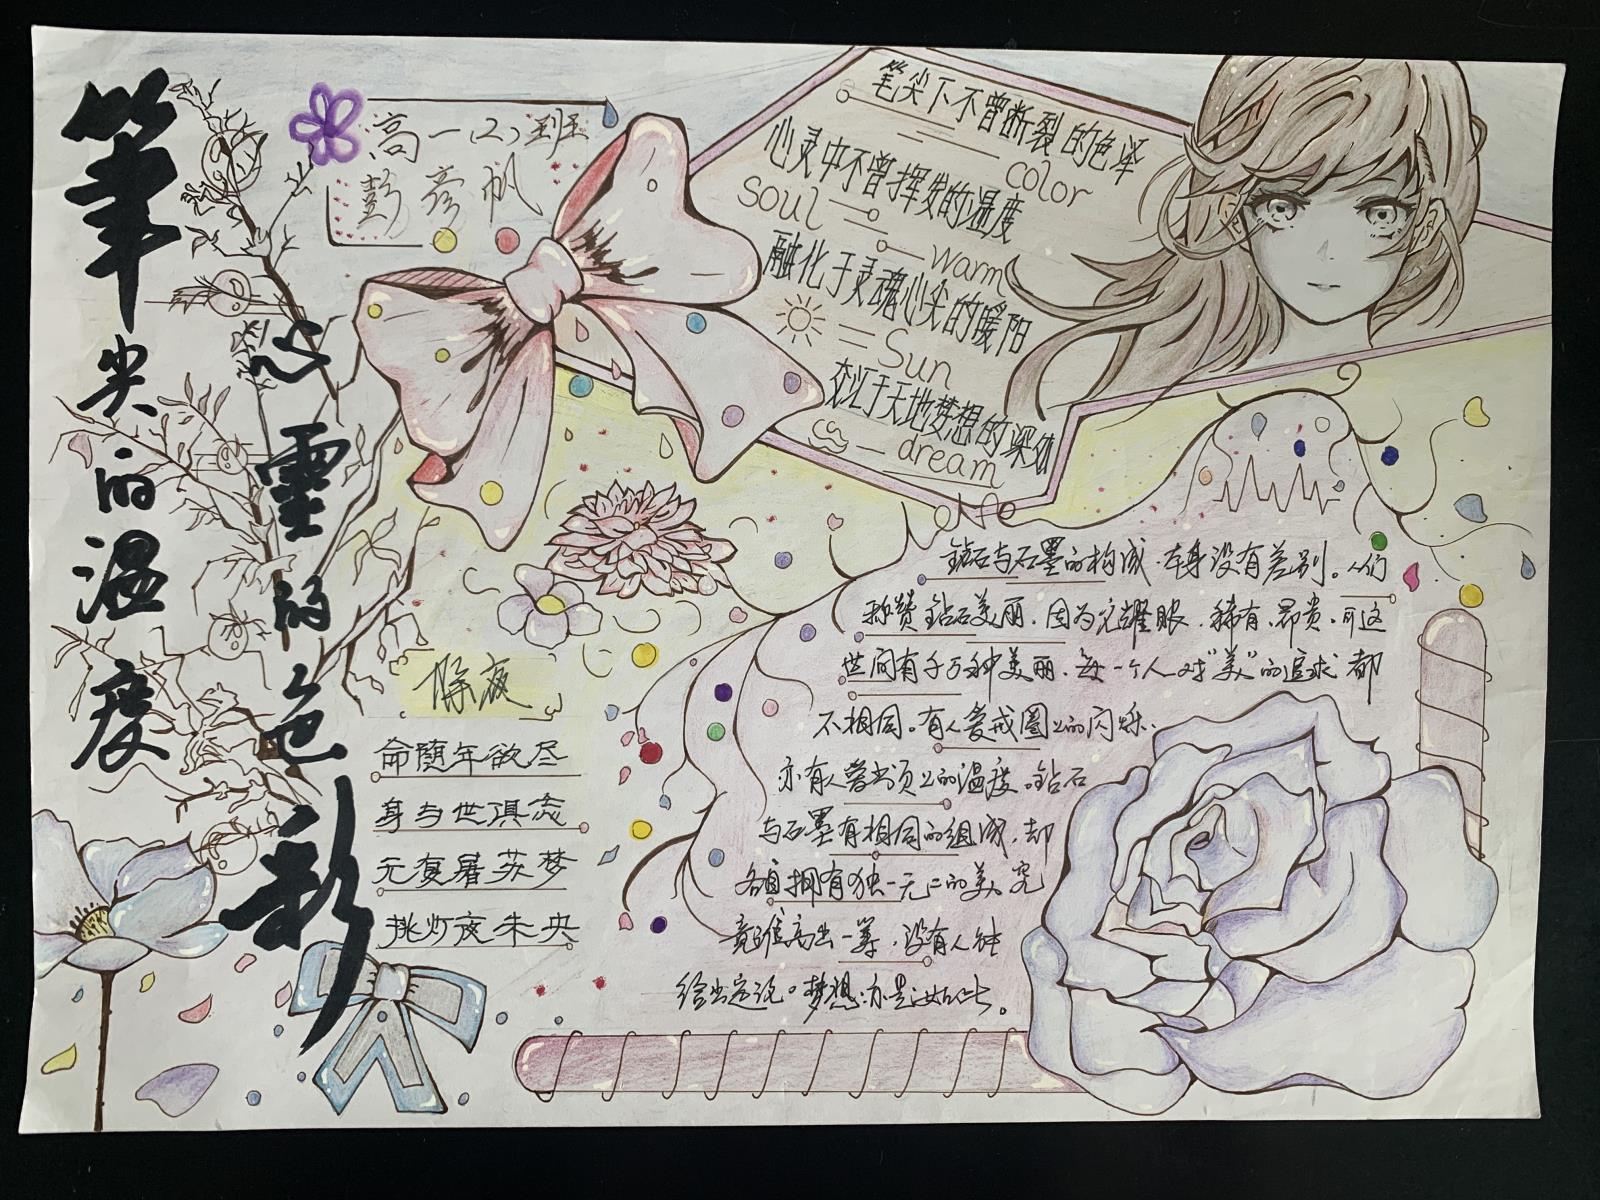 筆尖的温度
心靈的色彩
高一(2)班
彭彦帆
笔尖下不曾断裂的色泽
color
心灵中不曾挥发的温度
soul
warm
融化于灵魂心尖的暖阳
Sun
交汇于天地梦想的深处
dream
除夜
命随年欲尽
身与世俱忘
无复屠苏梦
挑灯夜未央
钻石与石墨的构成,本身没有差别。人们
称赞钻石美丽,因为光耀眼,稀有,昂贵,可这
世间有千万种美丽,每一个人对“美”的追求都
不相同。有人爱戒圈上的闪烁,
亦有人书页上的温度。钻石
与石墨有相同的组成,却
各自拥有独一无二的美,究
竟谁高出一筹,没有人能
给出定论。梦想亦是如此。